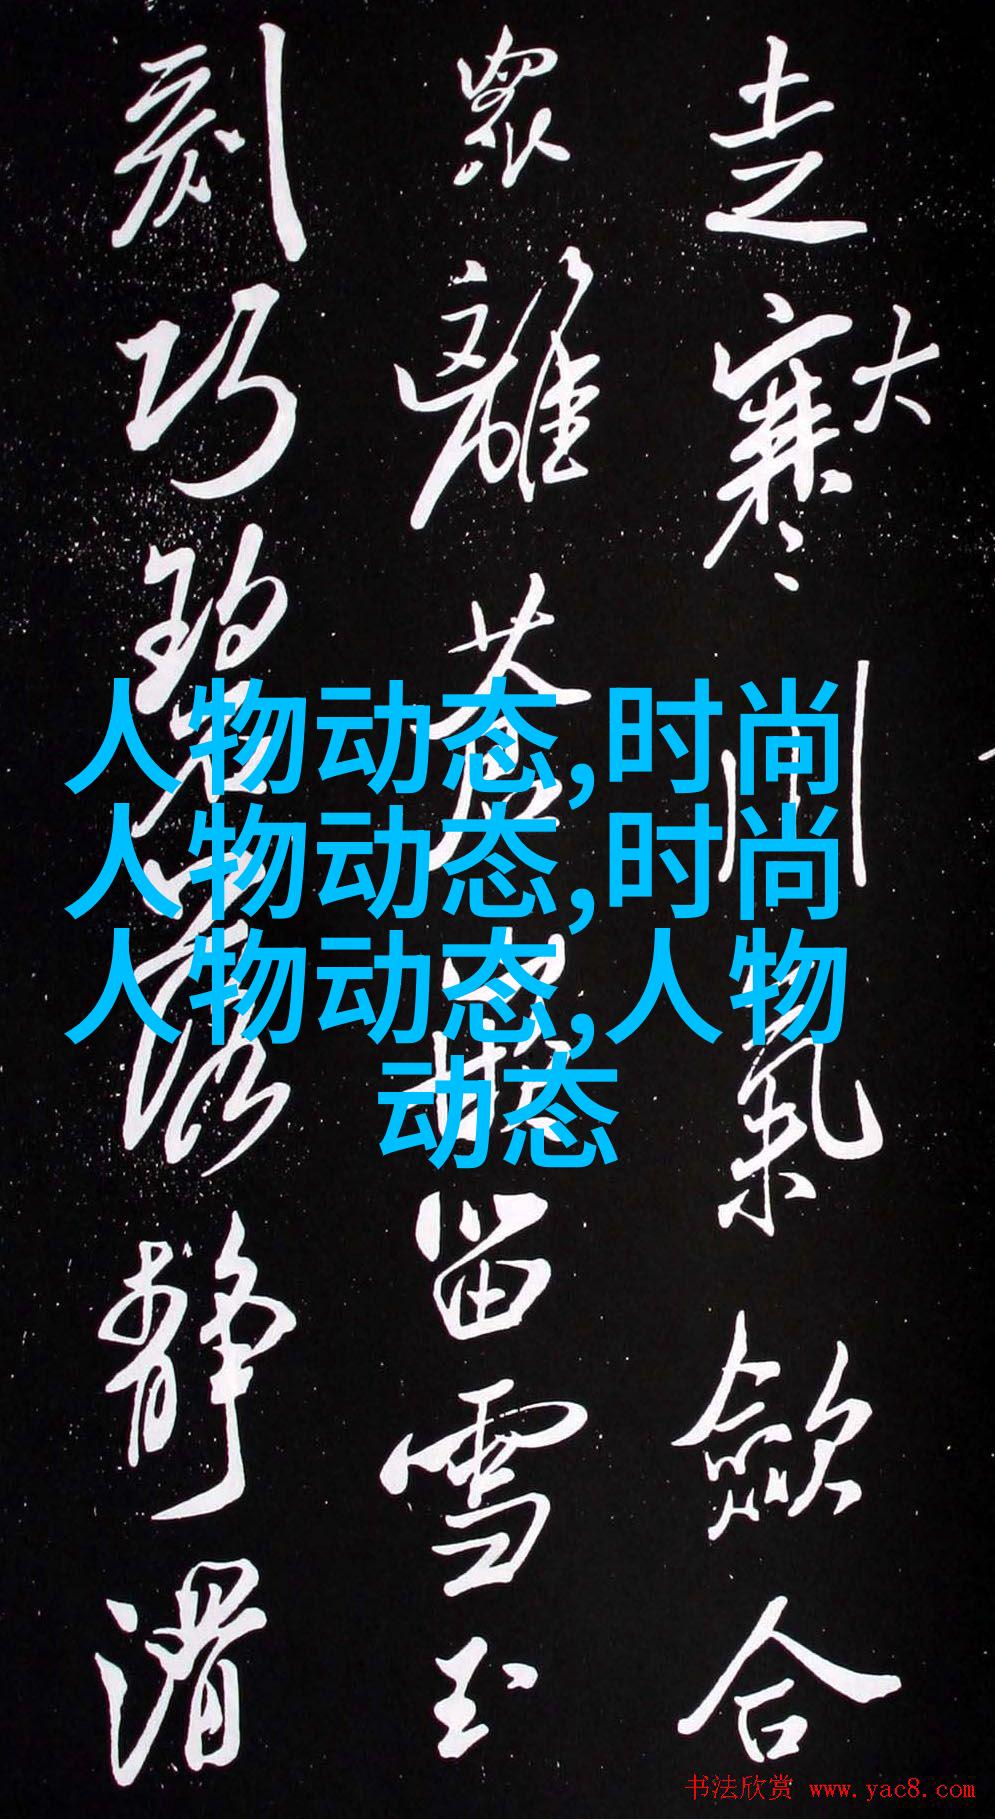 走寒大川氣歛合
衆離蒼留雪玉
刻巧碧落静滑
人物动态,时尚
人物动态,时尚
人物动态,人物
动态
书法欣赏 www.yac8.com